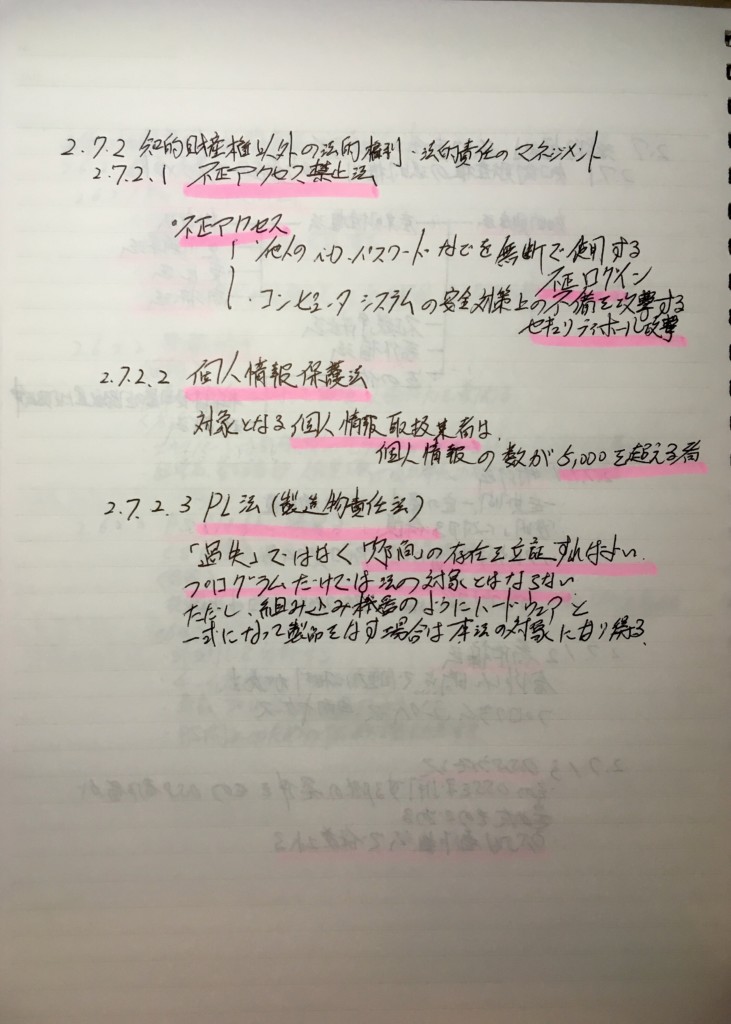 2.7.2 知的財産権以外の法的権利・法的責任のマネジメント
2.7.2.1 不正アクセス禁止法
・不正アクセス
・他人のiD.パスワードなどを無断で使用する
不正ログイン
・コンピュータシステムの安全対策上の不備を攻撃する
セキュリティホール攻撃
2.7.2.2 個人情報保護法
対象となる個人情報取扱業者は、
個人情報の数が5,000を超える者
2.7.2.3 PL法(製造物責任法)
「過失」ではなく「欠陥」の存在を立証すればよい.
プログラムだけでは法の対象とはならない
ただし、組み込み機器のようにハードウェアと
一式になって製品をなす場合は本法の対象になり得る.